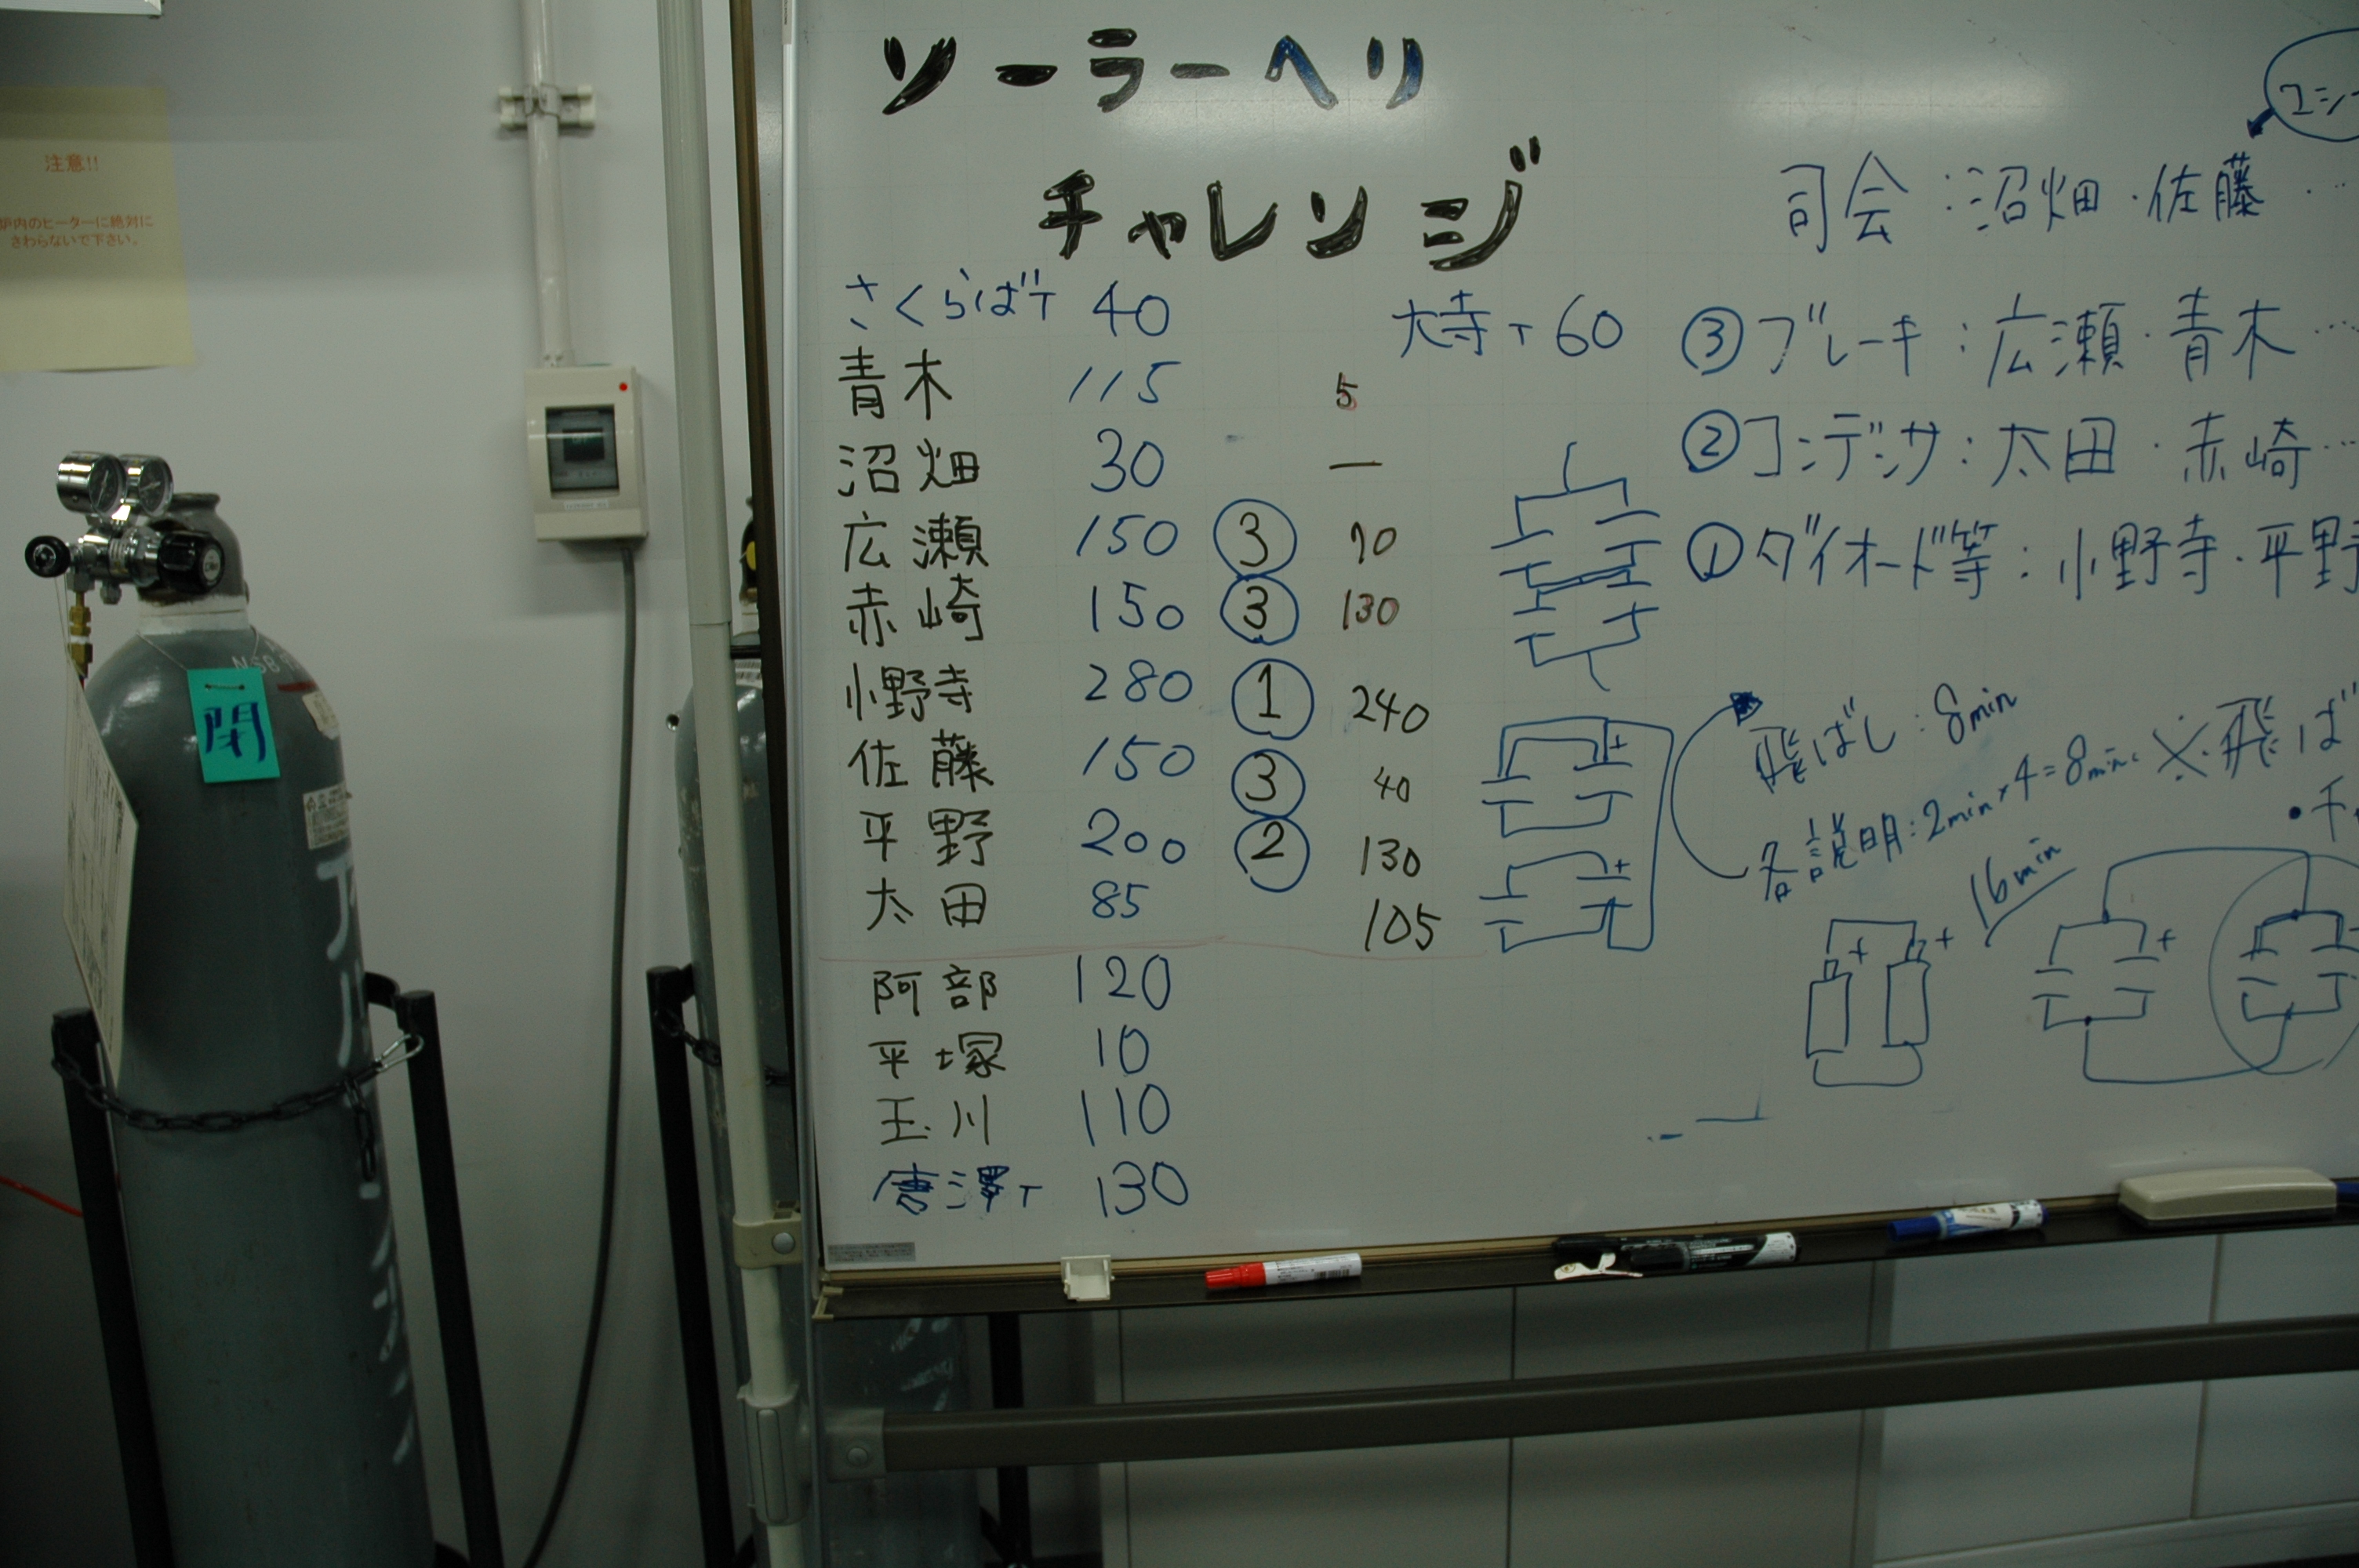 注意!!
炉内のヒーターに絶対に
さわらないで下さい。
閉
ソーラーヘリ
チャレンジ
さくらばT 40
大寺T 60
青木 115 5
沼畑 30 ー
広瀬 150 ③ 70
赤崎 150 ③ 130
小野寺 280 ① 240
佐藤 150 ③ 40
平野 200 ② 130
太田 85 105
阿部 120
平塚 10
玉川 110
唐澤T 130
司会:沼畑・佐藤…
③ブレーキ:広瀬・青木…
②コンデンサ:太田・赤崎…
①ダイオード等:小野寺・平野
飛ばし:8min
各説明:2min×4=8min.
16min
※飛ば